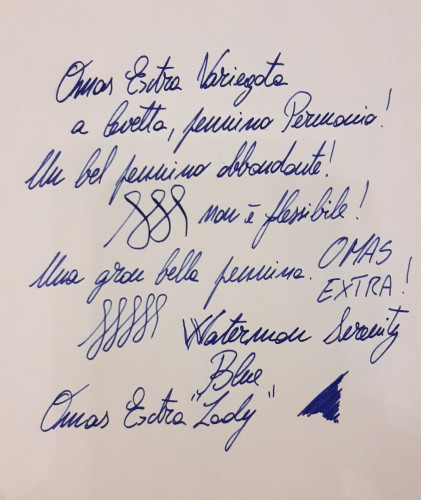 Omas Extra Variegata
a levetta, pennino Permanio!
Un bel pennino abbondante!
non è flessibile!
Una gran bella pennina. OMAS
EXTRA!
Waterman Serenity
Blue
Omas Extra "Lady"